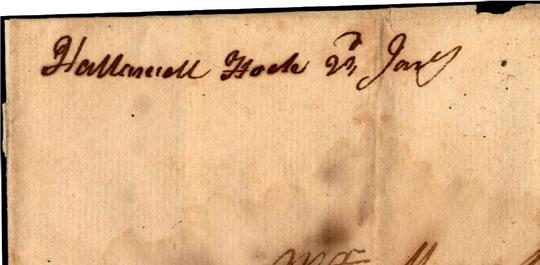 Hallowell Hook 23d Jany